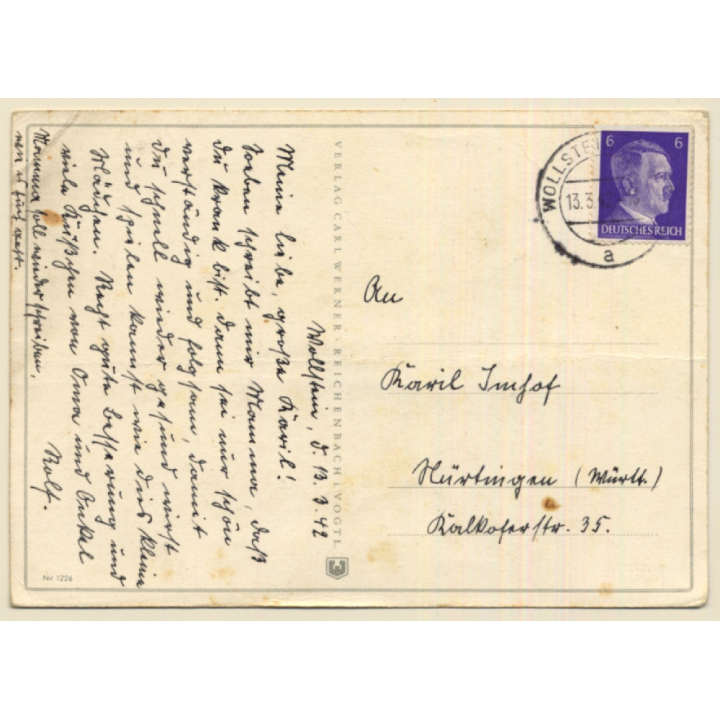 Wollstein, d. 13. 3. 42
Meine liebe, große Karil!
Soeben schreibt mir Mamma, daß
du krank bist. Dann sei nur schön
verständig und folgsam, damit
du schnell wieder gesund wirst
und spielen kannst wie dies kleine
Mädchen. Recht gute Besserung und
viele Küßchen von Oma und Onkel
Rolf.
Mamma soll wieder schreiben,
wie es
geht.
VERLAG CARL WERNER · REICHENBACH i. VOGTL.
Nr. 1226
WOLLSTEIN
13.3.42
a
6 6
DEUTSCHES REICH
An
Karil Imhof
Nürtingen (Württ.)
Kalkoferstr. 35.